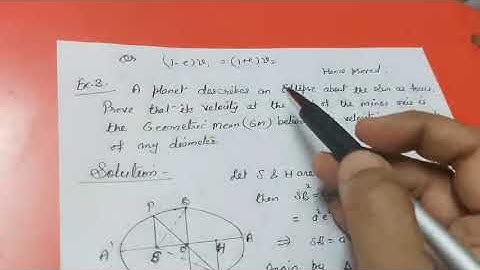 Or (1-e)v₁ = (1+e)v₂
Hence proved.
Ex-2. A planet describes an Ellipse about the Sun as focus.
Prove that its velocity at the of the minor axis is
the Geometric mean (GM) between velocit
of any diameter
Solution- Let S & H are
then SB² =
= a²e²
⇒ SB = a
Again by
P B
A' S C H A